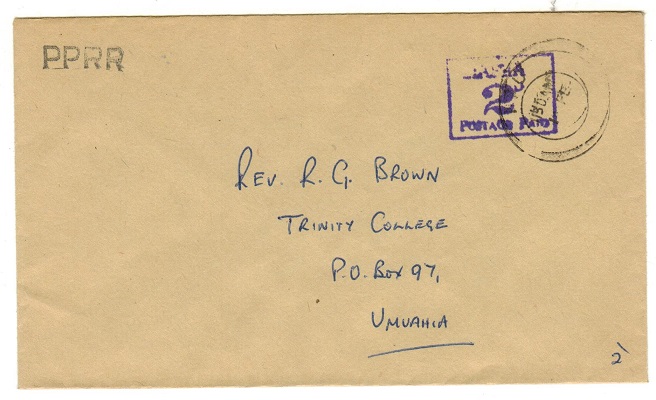 PPRR
2
POSTAGE PAID
REV. R. G. BROWN
TRINITY COLLEGE
P.O. BOX 97,
UMUAHIA
2